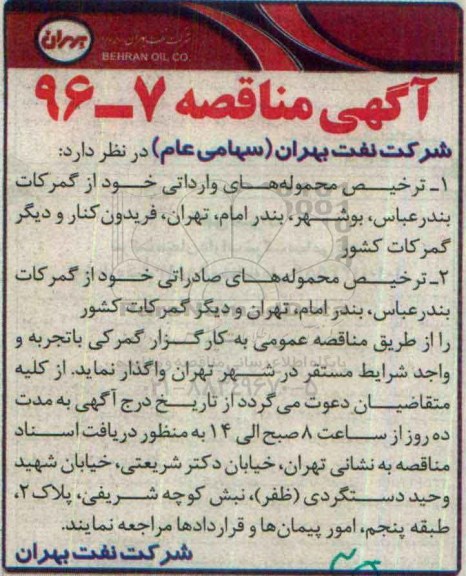 بهران
شرکت نفت بهران
BEHRAN OIL CO.
آگهی مناقصه ۷-۹۶
شرکت نفت بهران (سهامی عام) در نظر دارد:
۱- ترخیص محموله‌های وارداتی خود از گمرکات
بندرعباس، بوشهر، بندر امام، تهران، فریدون کنار و دیگر
گمرکات کشور
۲- ترخیص محموله‌های صادراتی خود از گمرکات
بندرعباس، بندر امام، تهران و دیگر گمرکات کشور
را از طریق مناقصه عمومی به کارگزار گمرکی باتجربه و
واجد شرایط مستقر در شهر تهران واگذار نماید. از کلیه
متقاضیان دعوت می‌گردد از تاریخ درج آگهی به مدت
ده روز از ساعت ۸ صبح الی ۱۴ به منظور دریافت اسناد
مناقصه به نشانی تهران، خیابان دکتر شریعتی، خیابان شهید
وحید دستگردی (ظفر)، نبش کوچه شریفی، پلاک ۲،
طبقه پنجم، امور پیمان‌ها و قراردادها مراجعه نمایند.
شرکت نفت بهران